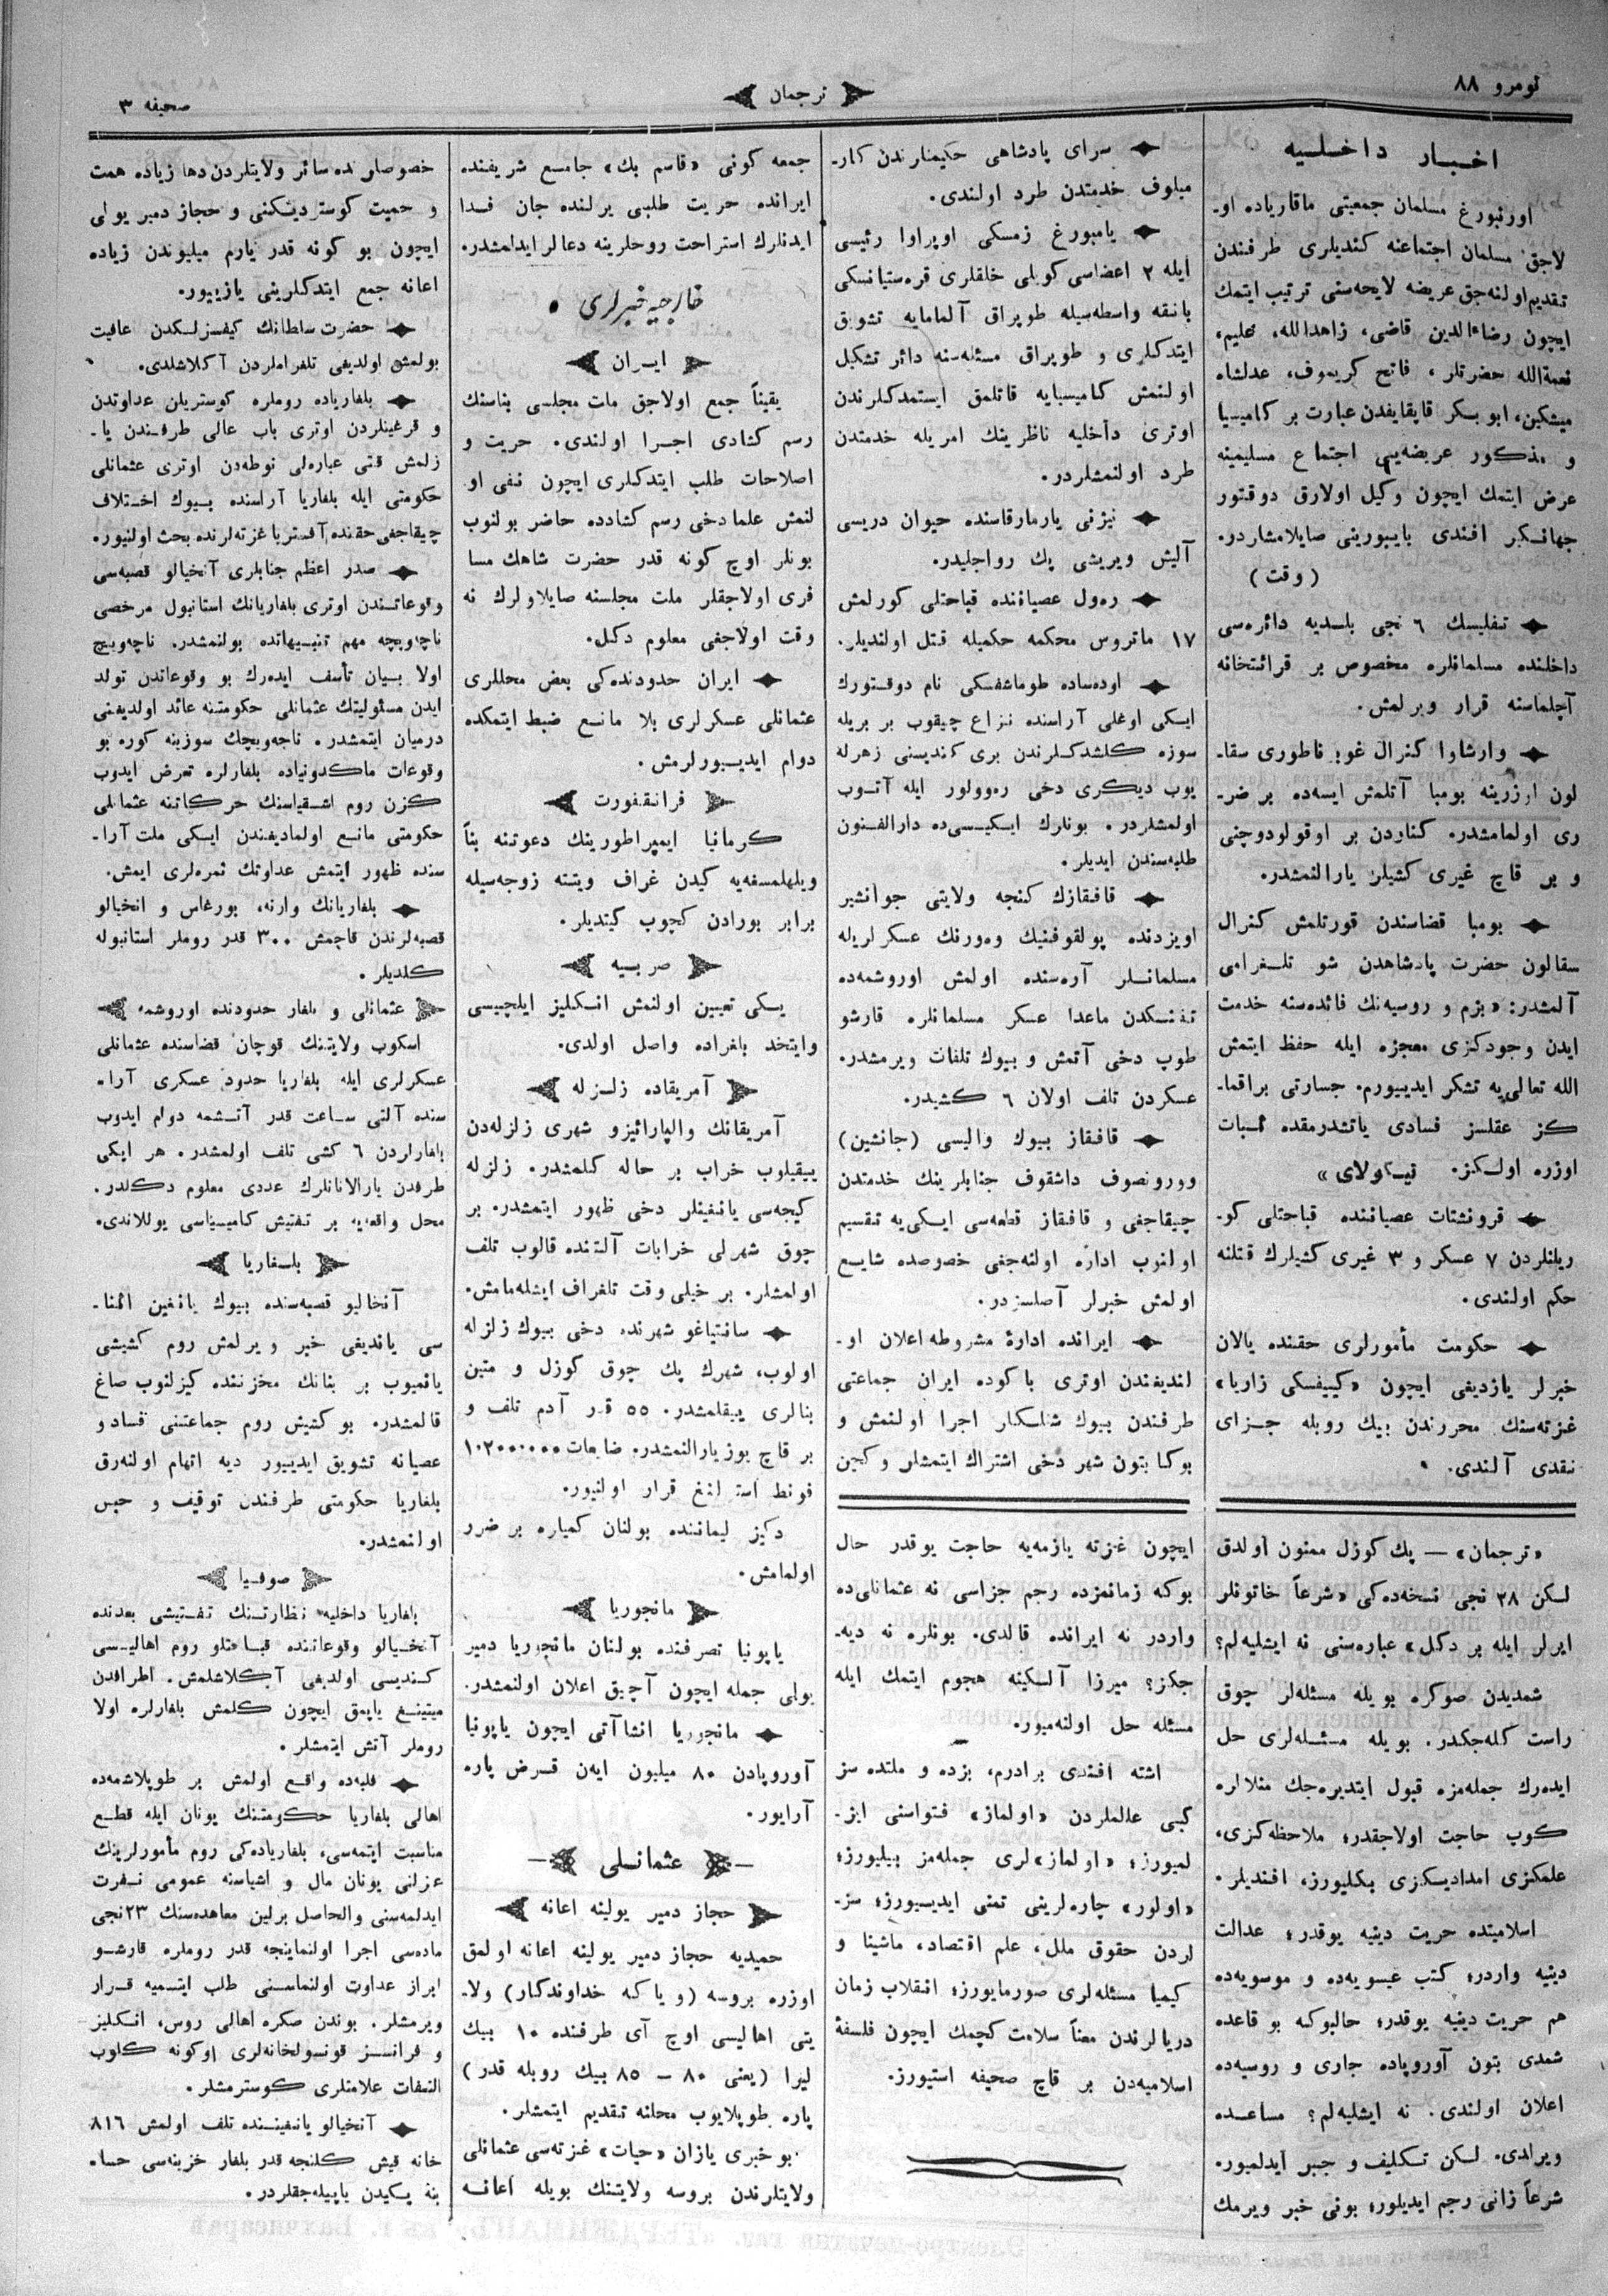 نومرو ٨٨
ترجمان
صحیفه ٣
اخبار داخلیه
اورنبورغ مسلمان جمعیتی ماقاریاده او-
لاجق مسلمان اجتماعنه کندیلری طرفندن
تقدیم اولنه‌جق عریضه لایحه‌سنی ترتیب ایتمك
ایچون رضاءالدین قاضی، زاهدالله، علیم،
نعمةالله حضرتلر، فاتح کریموف، عدلشاه
میشکین، ابو بکر قاپقایفدن عبارت بر کامیسیا
و مذکور عریضه‌یی اجتماع مسلیمینه
عرض ایتمك ایچون وکیل اولارق دوقتور
جهانکیر افندی بایبورینی صایلامشاردر.
(وقت)
تفلیسك ٦ نجی بلدیه دائره‌سی
داخلنده مسلمانلره مخصوص بر قرائتخانه
آچلماسنه قرار ویرلمش.
وارشاوا کنرال غوبرناطوری سقا-
لون ارزرینه بومبا آتلمش ایسه‌ده بر ضر-
ری اولمامشدر. کناردن بر اوقولودوچنی
و بر قاچ غیری کشیلر یارالنمشدر.
بومبا قضاسندن قورتلمش کنرال
سقالون حضرت پادشاهدن شو تلغرامی
آلمشدر: «بزم و روسیه‌نك فائده‌سنه خدمت
ایدن وجودکزی معجزه ایله حفظ ایتمش
الله تعالی‌یه تشکر ایدییورم. جسارتی براقما-
کز عقلسز فسادی یاتشدرمقده ثبات
اوزره اولکز. نیکولای»
قرونشتات عصیاننده قباحتلی کو-
ریلنلردن ٧ عسکر و ٣ غیری کشیلرك قتلنه
حکم اولندی.
حکومت مأمورلری حقنده یالان
خبرلر یازدیغی ایچون «کییفسکی زاریا»
غزته‌سنك محررندن بیك روبله جزای
نقدی آلندی.
«ترجمان» — پك کوزل ممنون اولدق
لکن ٢٨ نجی نسخه‌ده‌کی «شرعاً خاتونلر
ایرلر ایله بر دکل» عباره‌سنی نه ایشلیه‌لم؟
شمدیدن صوکره بویله مسئله‌لر چوق
راست کله‌جکدر. بویله مسئله‌لری حل
ایده‌رك جمله‌مزه قبول ایتدیره‌جك منلالره
کوب حاجت اولاجقدر؛ ملاحظه‌کزی،
علمکزی امدادیکزی بکلیورز، افندیلر.
اسلامیتده حریت دینیه یوقدر؛ عدالت
دینیه واردر؛ کتب عیسویه‌ده و موسویه‌ده
هم حریت دینیه یوقدر؛ حالبوکه بو قاعده
شمدی بتون آوروپاده جاری و روسیه‌ده
اعلان اولندی. نه ایشلیه‌لم؟ مساعده
ویرلدی. لکن تکلیف و جبر ایدلمیور.
شرعاً زانی رجم ایدیلور؛ بونی خبر ویرمك
سرای پادشاهی حکیملرندن کار-
میلوف خدمتدن طرد اولندی.
یامبورغ زمسکی اوپراوا رئیسی
ایله ٢ اعضاسی کویلی خلقلری قره‌ستیانسکی
بانقه واسطه‌سیله طوپراق آلمامایه تشویق
ایتدکلری و طوپراق مسئله‌سنه دائر تشکیل
اولنمش کامیسیایه قاتلمق ایستمدکلرندن
اوتری داخلیه ناظرینك امریله خدمتدن
طرد اولنمشلردر.
نیژنی یارمارقاسنده حیوان دریسی
آلیش ویریشی پك رواجلیدر.
ره‌ول عصیاننده قباحتلی کورلمش
١٧ ماتروس محکمه حکمیله قتل اولندیلر.
اوده‌ساده طوماشفسکی نام دوقتورك
ایکی اوغلی آراسنده نزاع چیقوب بر بریله
سوزه کلشدکلرندن بری کندیسنی زهرله
یوب دیکری دخی ره‌وولور ایله آتوب
اولمشلردر. بونلرك ایکیسی‌ده دارالفنون
طلبه‌سندن ایدیلر.
قافقازك کنجه ولایتی جوانشیر
اویزدنده پولقوفنیك وه‌ورنك عسکرلریله
مسلمانلر آره‌سنده اولمش اوروشمه‌ده
تفنکدن ماعدا عسکر مسلمانلره قارشو
طوپ دخی آتمش و بیوك تلفات ویرمشدر.
عسکردن تلف اولان ٦ کشیدر.
قافقاز بیوك والیسی (جانشین)
وورونصوف داشقوف جنابلرینك خدمتدن
چیقاجغی و قافقاز قطعه‌سی ایکی‌یه تقسیم
اولنوب اداره اولنه‌جغی خصوصده شایع
اولمش خبرلر آصلسزدر.
ایرانده ادارۀ مشروطه اعلان او-
لندیغندن اوتری باکوده ایران جماعتی
طرفندن بیوك شنلکلر اجرا اولنمش و
بوکا بتون شهر دخی اشتراك ایتمشلر و کچن
ایچون غزته یازمه‌یه حاجت یوقدر حال
بوکه زمانمزده رجم جزاسی نه عثمانلی‌ده
واردر نه ایرانده قالدی. بونلره نه دیه-
جکز؟ میرزا آلسکینه هجوم ایتمك ایله
مسئله حل اولنه‌میور.
اشته افندی برادرم، بزده و ملتده سز
کبی عالملردن «اولماز» فتواسنی ایز-
لمیورز؛ «اولماز»لری جمله‌مز بیلیورز؛
«اولور» چاره‌لرینی تمنی ایدییورز؛ سز-
لردن حقوق ملل، علم اقتصاد، ماشینا و
کیمیا مسئله‌لری صورمایورز؛ انقلاب زمان
دریالرندن معناً سلامت کچمك ایچون فلسفۀ
اسلامیه‌دن بر قاچ صحیفه استیورز.
جمعه کونی «قاسم بك» جامع شریفنده
ایرانده حریت طلبی یرلنده جان فدا
ایدنلرك استراحت روحلرینه دعالر ایدلمشدر.
خارجیه خبرلری
ایران
یقیناً جمع اولاجق ملت مجلسی بناسنك
رسم کشادی اجرا اولندی. حریت و
اصلاحات طلب ایتدکلری ایچون نفی او
لنمش علما دخی رسم کشادده حاضر بولنوب
بونلر اوچ کونه قدر حضرت شاهك مسا
فری اولاجقلر ملت مجلسنه صایلاولرك نه
وقت اولاجغی معلوم دکل.
ایران حدودنده‌کی بعض محللری
عثمانلی عسکرلری بلا مانع ضبط ایتمکده
دوام ایدیبورلرمش.
فرانقفورت
کرمانیا ایمپراطورینك دعوتنه بناً
ویلهلمسفه‌یه کیدن غراف ویتته زوجه‌سیله
برابر بورادن کچوب کیتدیلر.
صربیه
یکی تعیین اولنمش انکلیز ایلچیسی
وایتخد بلغراده واصل اولدی.
آمریقاده زلزله
آمریقانك والپارائیزو شهری زلزله‌دن
ییقیلوب خراب بر حاله کلمشدر. زلزله
کیجه‌سی یانغینلر دخی ظهور ایتمشدر. بر
چوق شهرلی خرابات آلتنده قالوب تلف
اولمشلر. بر خیلی وقت تلغراف ایشله‌مامش.
سانتیاغو شهرنده دخی بیوك زلزله
اولوب، شهرك پك چوق کوزل و متین
بنالری ییقلمشدر. ٥٥ قدر آدم تلف و
بر قاچ یوز یارالنمشدر. ضایعات
فونط قرار اولنیور.
دکیز لیماننده بولنان کمیلره بر ضرر
اولمامش.
مانجوریا
یاپونیا تصرفنده بولنان مانجوریا دمیر
یولی جمله ایچون آچیق اعلان اولنمشدر.
مانجوریا انشاآتی ایچون یاپونیا
آوروپادن ٨٠ میلیون ایه‌ن قرض پاره
آرایور.
عثمانلی
حجاز دمیر یولینه اعانه
حمیدیه حجاز دمیر یولینه اعانه اولمق
اوزره بروسه (و یا که خداوندکار) ولا-
یتی اهالیسی اوچ آی طرفنده ١٠ بیك
لیرا (یعنی ٨٠ – ٨٥ بیك روبله قدر)
پاره طوپلایوب محلنه تقدیم ایتمشلر.
بو خبری یازان «حیات» غزته‌سی عثمانلی
ولایتلرندن بروسه ولایتنك بویله اعانه
خصوصلرنده سائر ولایتلردن دها زیاده همت
و حمیت کوستردیکنی و حجاز دمیر یولی
ایچون بو کونه قدر یارم میلیوندن زیاده
اعانه جمع ایتدکلرینی یازییور.
حضرت سلطانك کیفسزلکدن عافیت
بولمش اولدیغی تلغراملردن آکلاشلدی.
بلغاریاده روملره کوستریلن عداوتدن
و قرغینلردن اوتری باب عالی طرفندن یا-
زلمش قتی عباره‌لی نوطه‌دن اوتری عثمانلی
حکومتی ایله بلغاریا آراسنده بیوك اختلاف
چیقاجغی حقنده آفستریا غزته‌لرنده بحث اولنیور.
صدر اعظم جنابلری آنخیالو قصبه‌سی
وقوعاتندن اوتری بلغاریانك استانبول مرخصی
ناچه‌ویچه مهم تنبیهاتده بولنمشدر. ناچه‌ویچ
اولا بیان تأسف ایده‌رك بو وقوعاتدن تولد
ایدن مسئولیتك عثمانلی حکومتنه عائد اولدیغنی
درمیان ایتمشدر. ناجه‌ویچك سوزینه کوره بو
وقوعات ماکدونیاده بلغارلره تعرض ایدوب
کزن روم اشقیاسنك حرکاتنه عثمانلی
حکومتی مانع اولمادیغندن ایکی ملت آرا-
سنده ظهور ایتمش عداوتك ثمره‌لری ایمش.
بلغاریانك وارنه، بورغاس و انخیالو
قصبه‌لرندن قاچمش ٣٠٠ قدر روملر استانبوله
کلدیلر.
عثمانلی و بلغار حدودنده اوروشمه
اسکوب ولایتنك قوچان قضاسنده عثمانلی
عسکرلری ایله بلغاریا حدود عسکری آرا-
سنده آلتی ساعت قدر آتشمه دوام ایدوب
بلغارلردن ٦ کشی تلف اولمشدر. هر ایکی
طرفدن یارالانانلرك عددی معلوم دکلدر.
محل واقعه‌یه بر تفتیش کامیسیاسی یوللاندی.
بلغاریا
آنخالیو قصبه‌سنده بیوك یانغین اثنا-
سی یاندیغی خبر ویرلمش روم کشیشی
یانمیوب بر بنانك مخزننده کیزلنوب صاغ
قالمشدر. بو کشیش روم جماعتنی فساد و
عصیانه تشویق ایدییور دیه اتهام اولنه‌رق
بلغاریا حکومتی طرفندن توقیف و حبس
اولنمشدر.
صوفیا
بلغاریا داخلیه نظارتنك تفتیشی بعدنده
آنخیالو وقوعاتنده قباحتلو روم اهالیسی
کندیسی اولدیغی آکلاشلمش. اطرافدن
میتینغ یاپمق ایچون کلمش بلغارلره اولا
روملر آتش ایتمشلر.
فلبه‌ده واقع اولمش بر طوپلاشمه‌ده
اهالی بلغاریا حکومتنك یونان ایله قطع
مناسبت ایتمه‌سی، بلغاریاده‌کی روم مأمورلرینك
عزلنی یونان مال و اشیاسنه عمومی نفرت
ایدلمه‌سنی والحاصل برلین معاهده‌سنك ٢٣نجی
ماده‌سی اجرا اولنماینجه قدر روملره قارشو
ابراز عداوت اولنماسنی طلب ایتمیه قرار
ویرمشلر. بوندن صکره اهالی روس، انکلیز
و فرانسز قونسولخانه‌لری اوکونه کلوب
التفات علامتلری کوسترمشلر.
آنخیالو یانغیننده تلف اولمش ٨١٦
خانه قیش کلنجه قدر بلغار خزینه‌سی حسا-
بنه یکیدن یاپیله‌جقلردر.